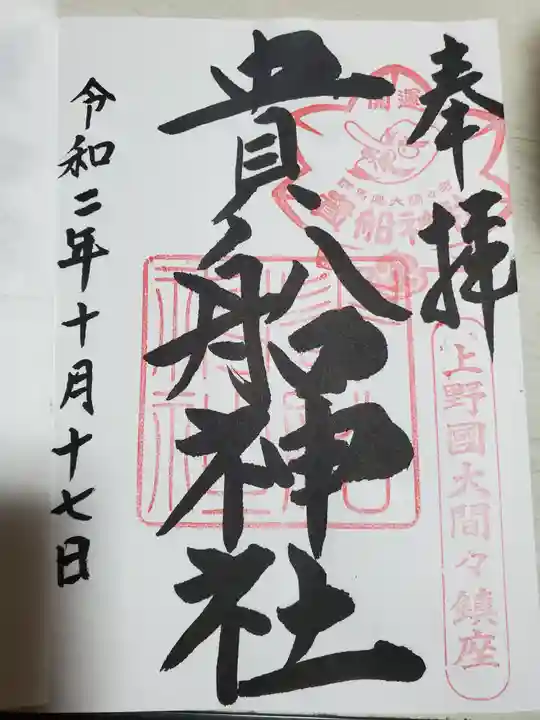 奉拝
開運
貴船神社
上野國大間々鎮座
貴船神社
令和二年十月十七日